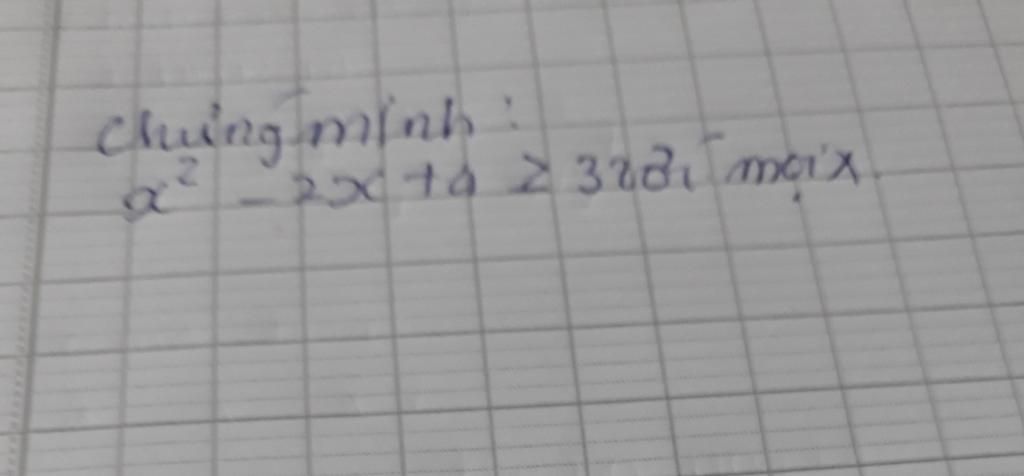 Chứng minh :
x² - 2x + 4 ≥ 3 với mọi x